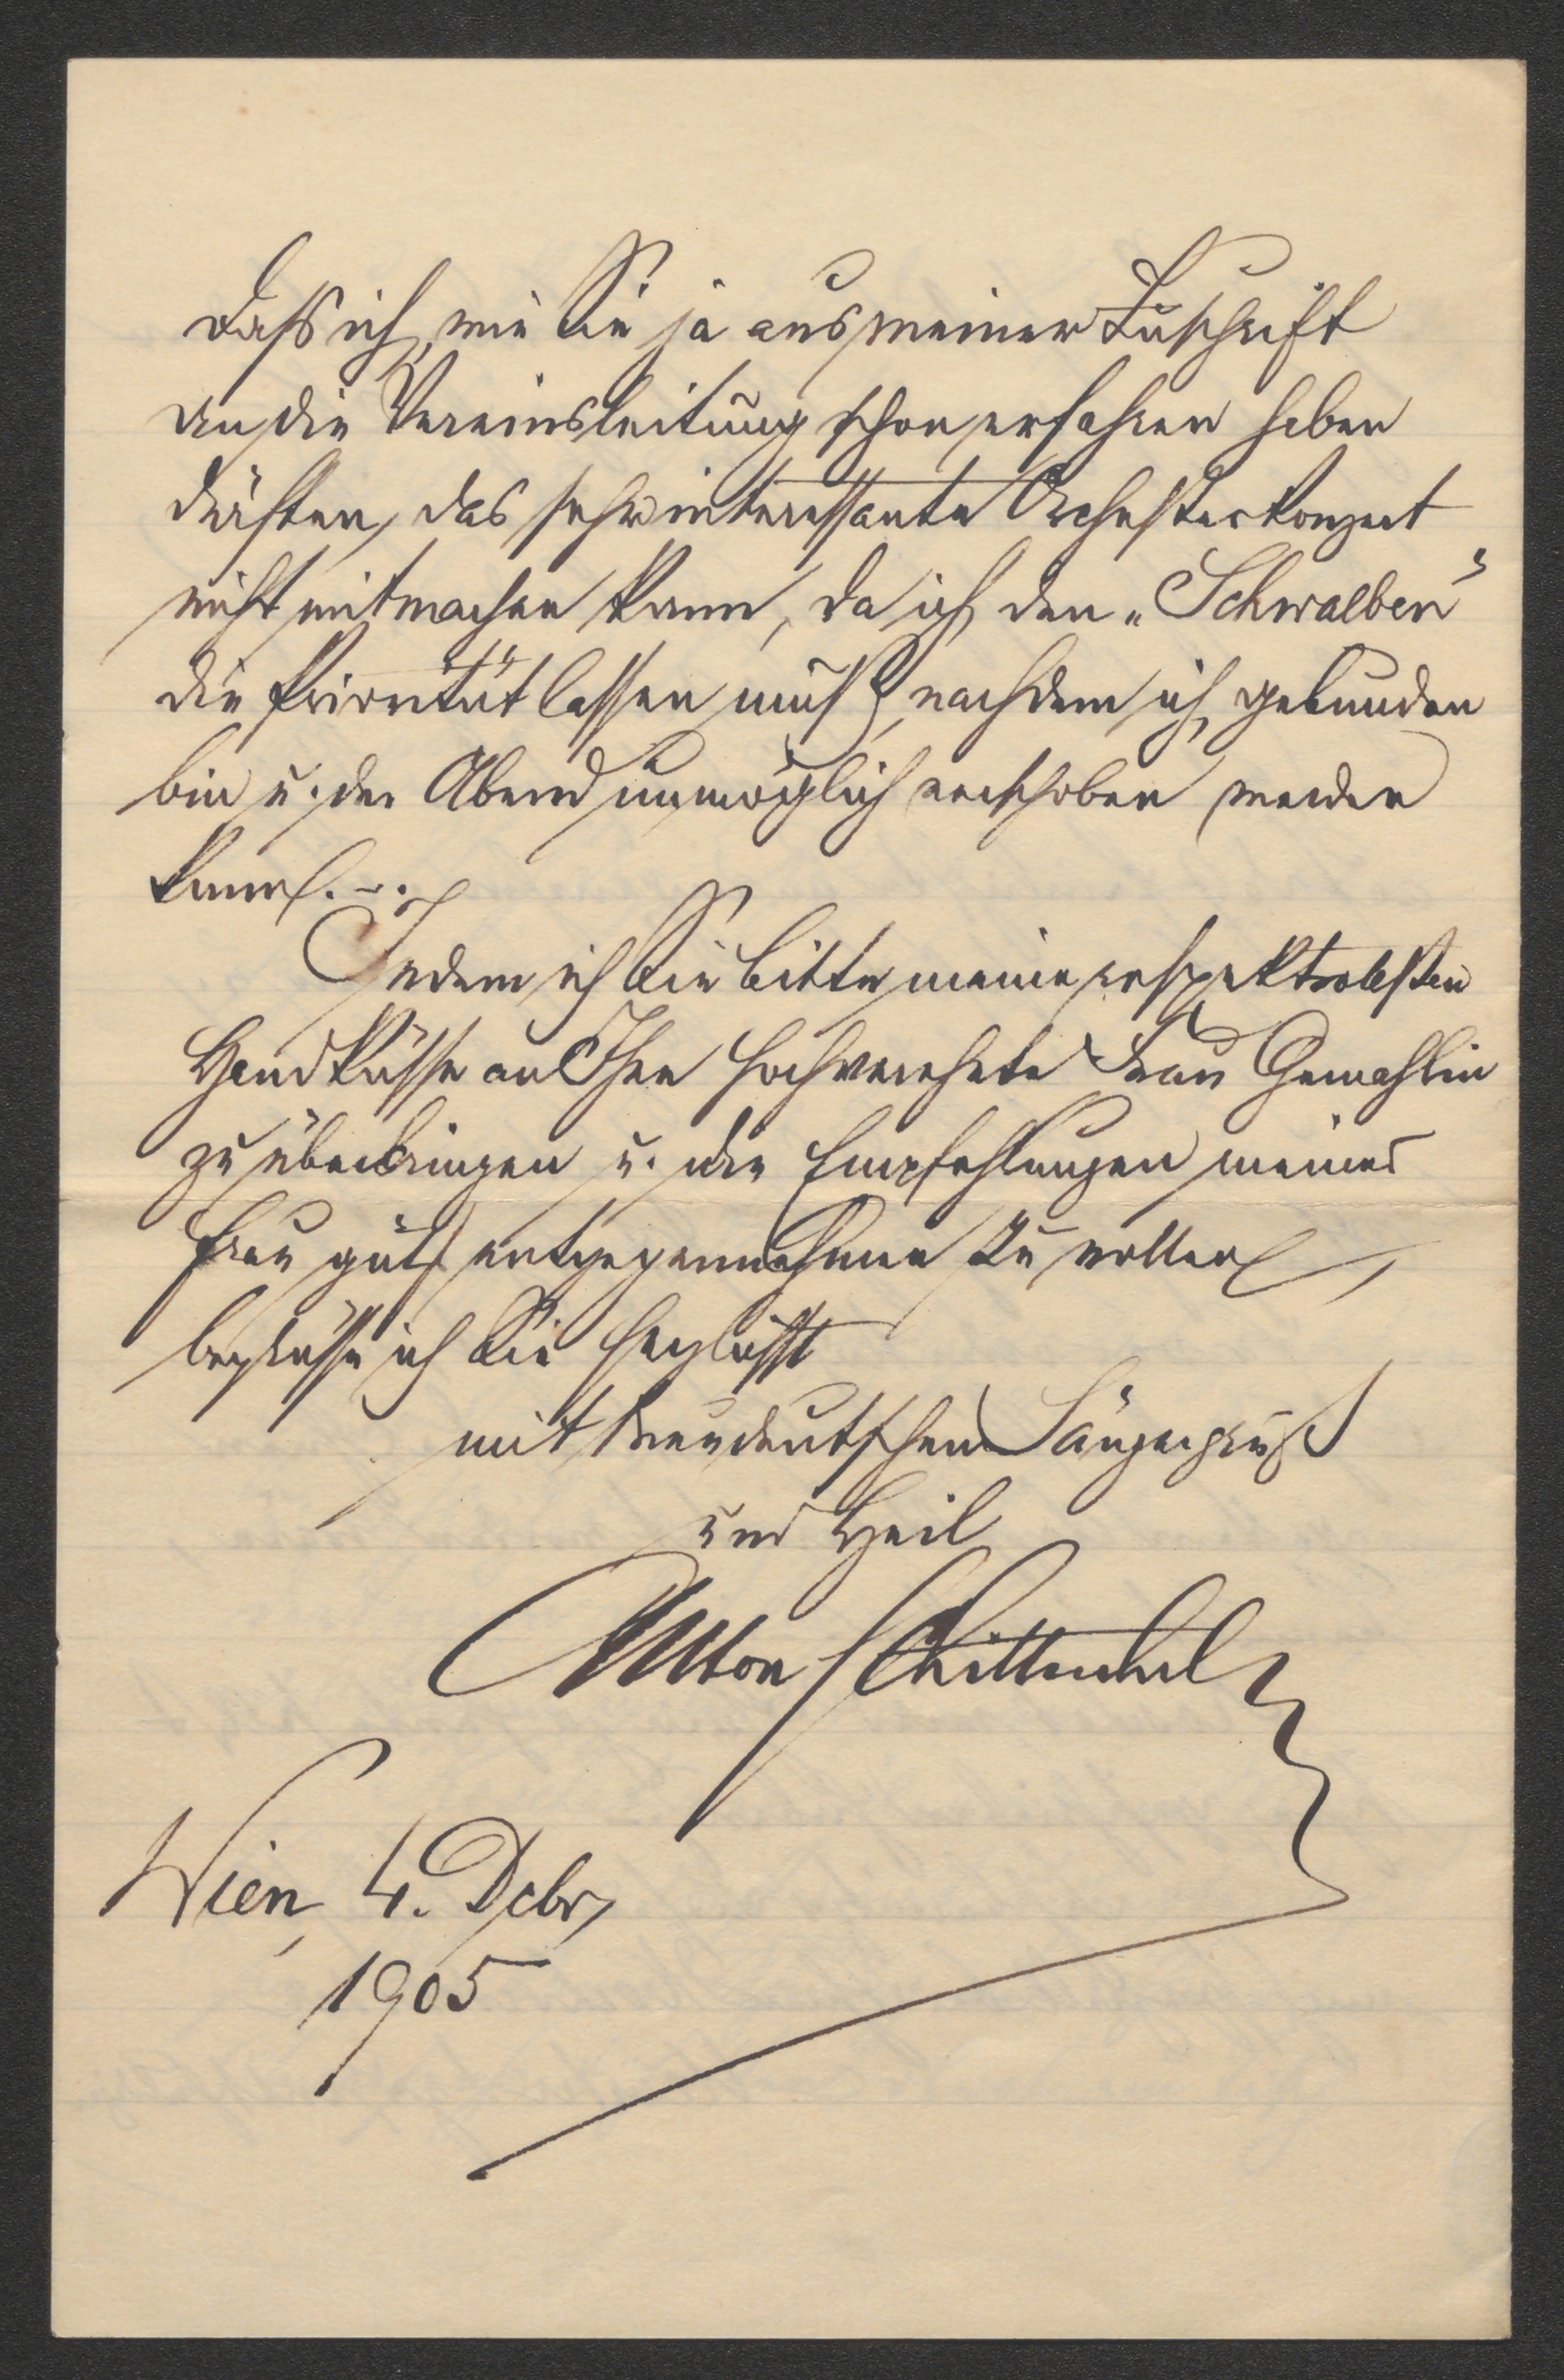 daß ich, wie Sie ja aus meiner Zuschrift
an die Vereinsleitung schon erfahren haben
dürften, das sehr interessante Orchesterkonzert
nicht mitmachen kann, da ich den „Schwalben“
die Priorität lassen muß, nachdem ich gebunden
bin u. der Abend unmöglich verschoben werden
kann. –.
Indem ich Sie bitte, meine respektvollsten
Handküsse an Ihre hochverehrte Frau Gemahlin
zu überbringen u. die Empfehlungen meiner
Frau güt. entgegennehmen zu wollen,
begrüsse ich Sie herzlichst
mit treudeutschem Sängergruß
und Heil
Anton Schittenhelm
Wien, 4. Dcbr,
1905